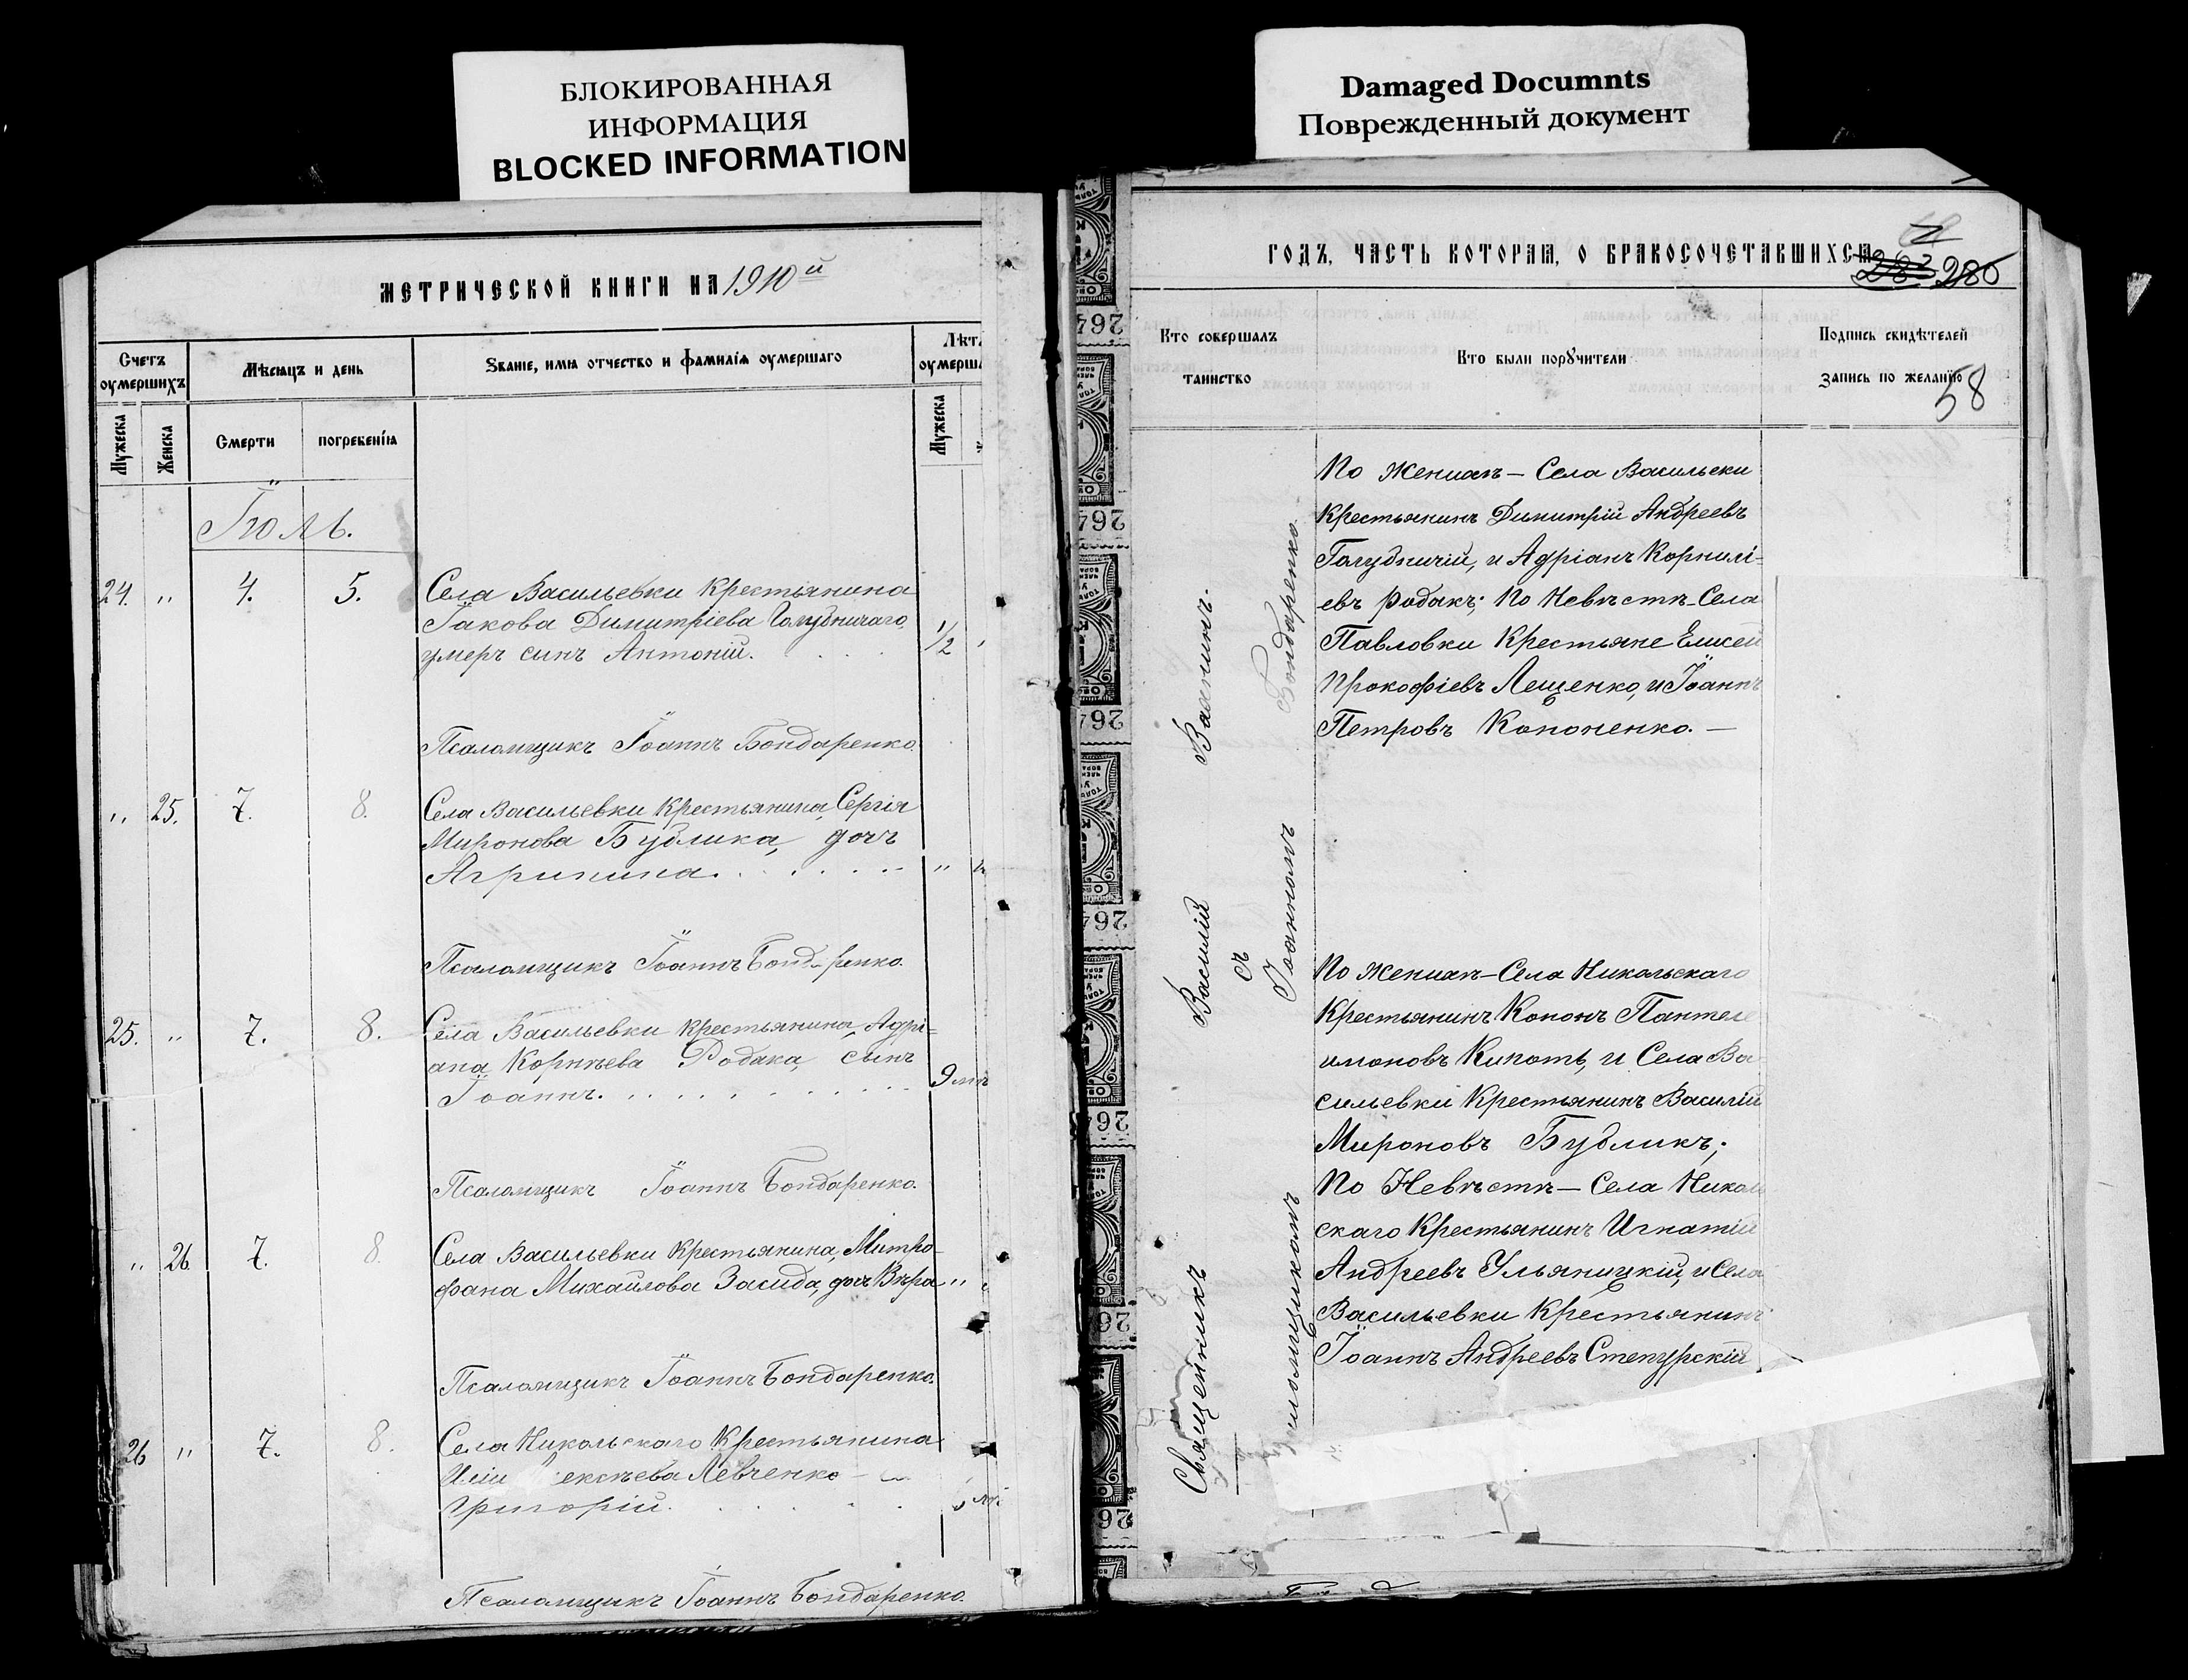 БЛОКИРОВАННАЯ
ИНФОРМАЦИЯ
BLOCKED INFORMATION
Damaged Documnts
Поврежденный документ
МЕТРИЧЕСКОЙ КНИГИ НА 1910й
Счетъ
оумершихъ
Мѣсяцъ и день
Званіе, имя отчество и фамилія оумершаго
Лѣт
оумерш
Мужеска
Женска
Смерти
погребенія
Мужеска
Іюль.
24. " 4. 5. Села Васильевки Крестьянина
Іакова Димитріева Голубничаго,
умеръ сынъ Антоній. 1/2
Псаломщикъ Іоаннъ Бондаренко.
" 25. 7. 8. Села Васильевки Крестьянина, Сергія
Миронова Бублика, дочь
Агрипина. "
Псаломщикъ Іоаннъ Бондаренко.
25. " 7. 8. Села Васильевки Крестьянина, Адрі-
ана Корнѣева Родака, сынъ
Іоаннъ. 9
Псаломщикъ Іоаннъ Бондаренко.
" 26. 7. 8. Села Васильевки Крестьянина, Митро-
фана Михайлова Засида, дочь Вѣра "
Псаломщикъ Іоаннъ Бондаренко.
26 " 7. 8. Села Никольскаго Крестьянина
Иліи ексѣева Левченко
Григорій.
Псаломщикъ Іоаннъ Бондаренко.
ГОДЪ, ЧАСТЬ КОТОРАЯ, О БРАКОСОЧЕТАВШИХСЯ
280
Кто совершалъ
таинство
Кто были порꙋчители
Подпись свидѣтелей
запись по желанію
58
Священникъ Василій Ваянинъ.
съ
Псаломщикомъ Іоанномъ Бондаренко.
По Женихѣ — Села Васильевки
Крестьянинъ Димитрій Андреевъ
Голубничій, и Адріанъ Корнилі-
евъ Родакъ; По Невѣстѣ - Села
Павловки Крестьяне Елисей
Прокофіевъ Лещенко, и Іоаннъ
Петровъ Кононенко. —
По Женихѣ — Села Никольскаго
Крестьянинъ Кононъ Пантеле
имоновъ Кипоть, и Села Ва
сильевки Крестьянинъ Василій
Мироновъ Бубликъ;
По Невѣстѣ — Села Николь
скаго Крестьянинъ Игнатій
Андреевъ Ульяницкій, и Села
Васильевки Крестьянинъ
Іоаннъ Андреевъ Степурскій